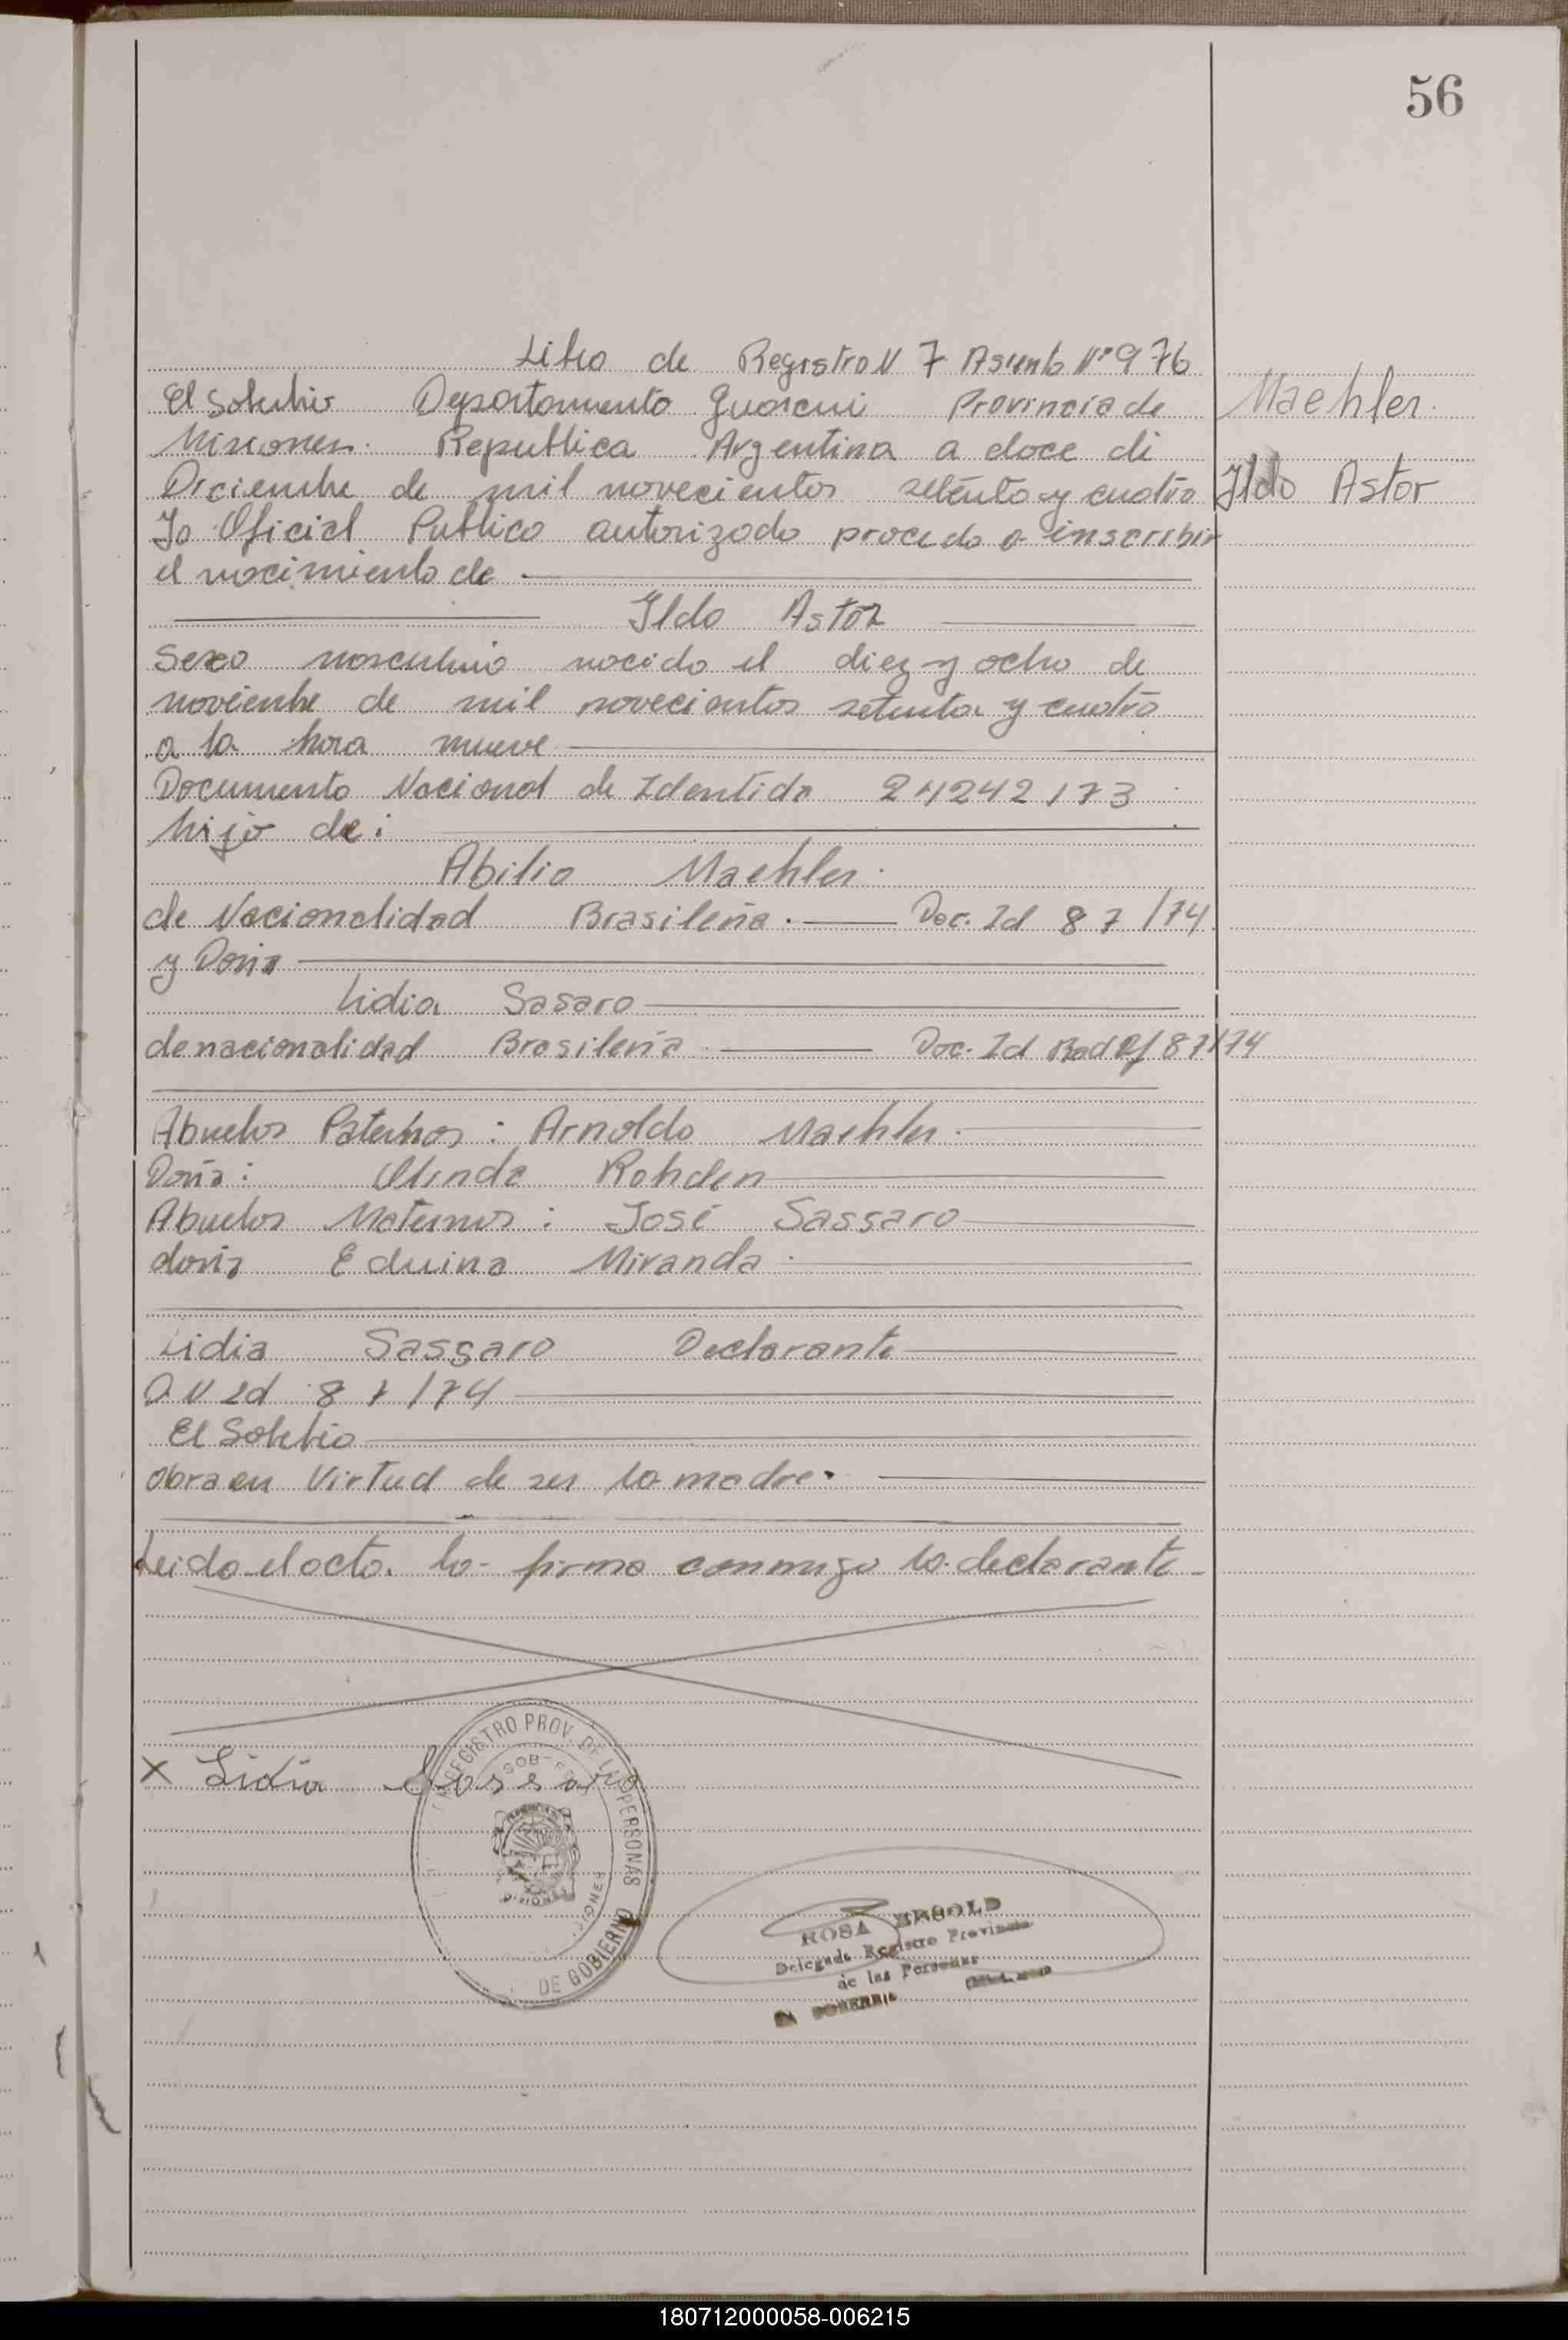 56
Libro de Registro N 7 Asunto Nº 976
El Soberbio Departamento Guarani Provincia de
Misiones. Republica Argentina a doce de
Diciembre de mil novecientos setenta y cuatro
Yo Oficial Publico autorizado procedo a inscribir
el nacimiento de
Maehler.
Ildo Astor
Ildo Astor
Sexo masculino nacido el diez y ocho de
noviembre de mil novecientos setenta y cuatro
a la hora nueve
Documento Nacional de Identida 24242173
hijo de:
Abilio Maehler.
de Nacionalidad Brasileña. Doc. Id 87/74
y Doña
Lidia Sasaro
de nacionalidad Brasileña Doc. Id Rad 87/74
Abuelos Paternos: Arnoldo Maehler.
Doña: Olinda Rohden
Abuelos Maternos: José Sassaro
doña Eduina Miranda.
Lidia Sassaro Declarante
D.N Id 87/74
El Soberbio
obra en Virtud de ser la madre.
Leido el acta. la firma conmigo la declarante
X Lidia Sossaro
REGISTRO PROV. DE LAS PERSONAS
MISIONES
DE GOBIERNO
ROSA
Delegada Registro Provincial
de las Personas
EL SOBERBIO
180712000058-006215